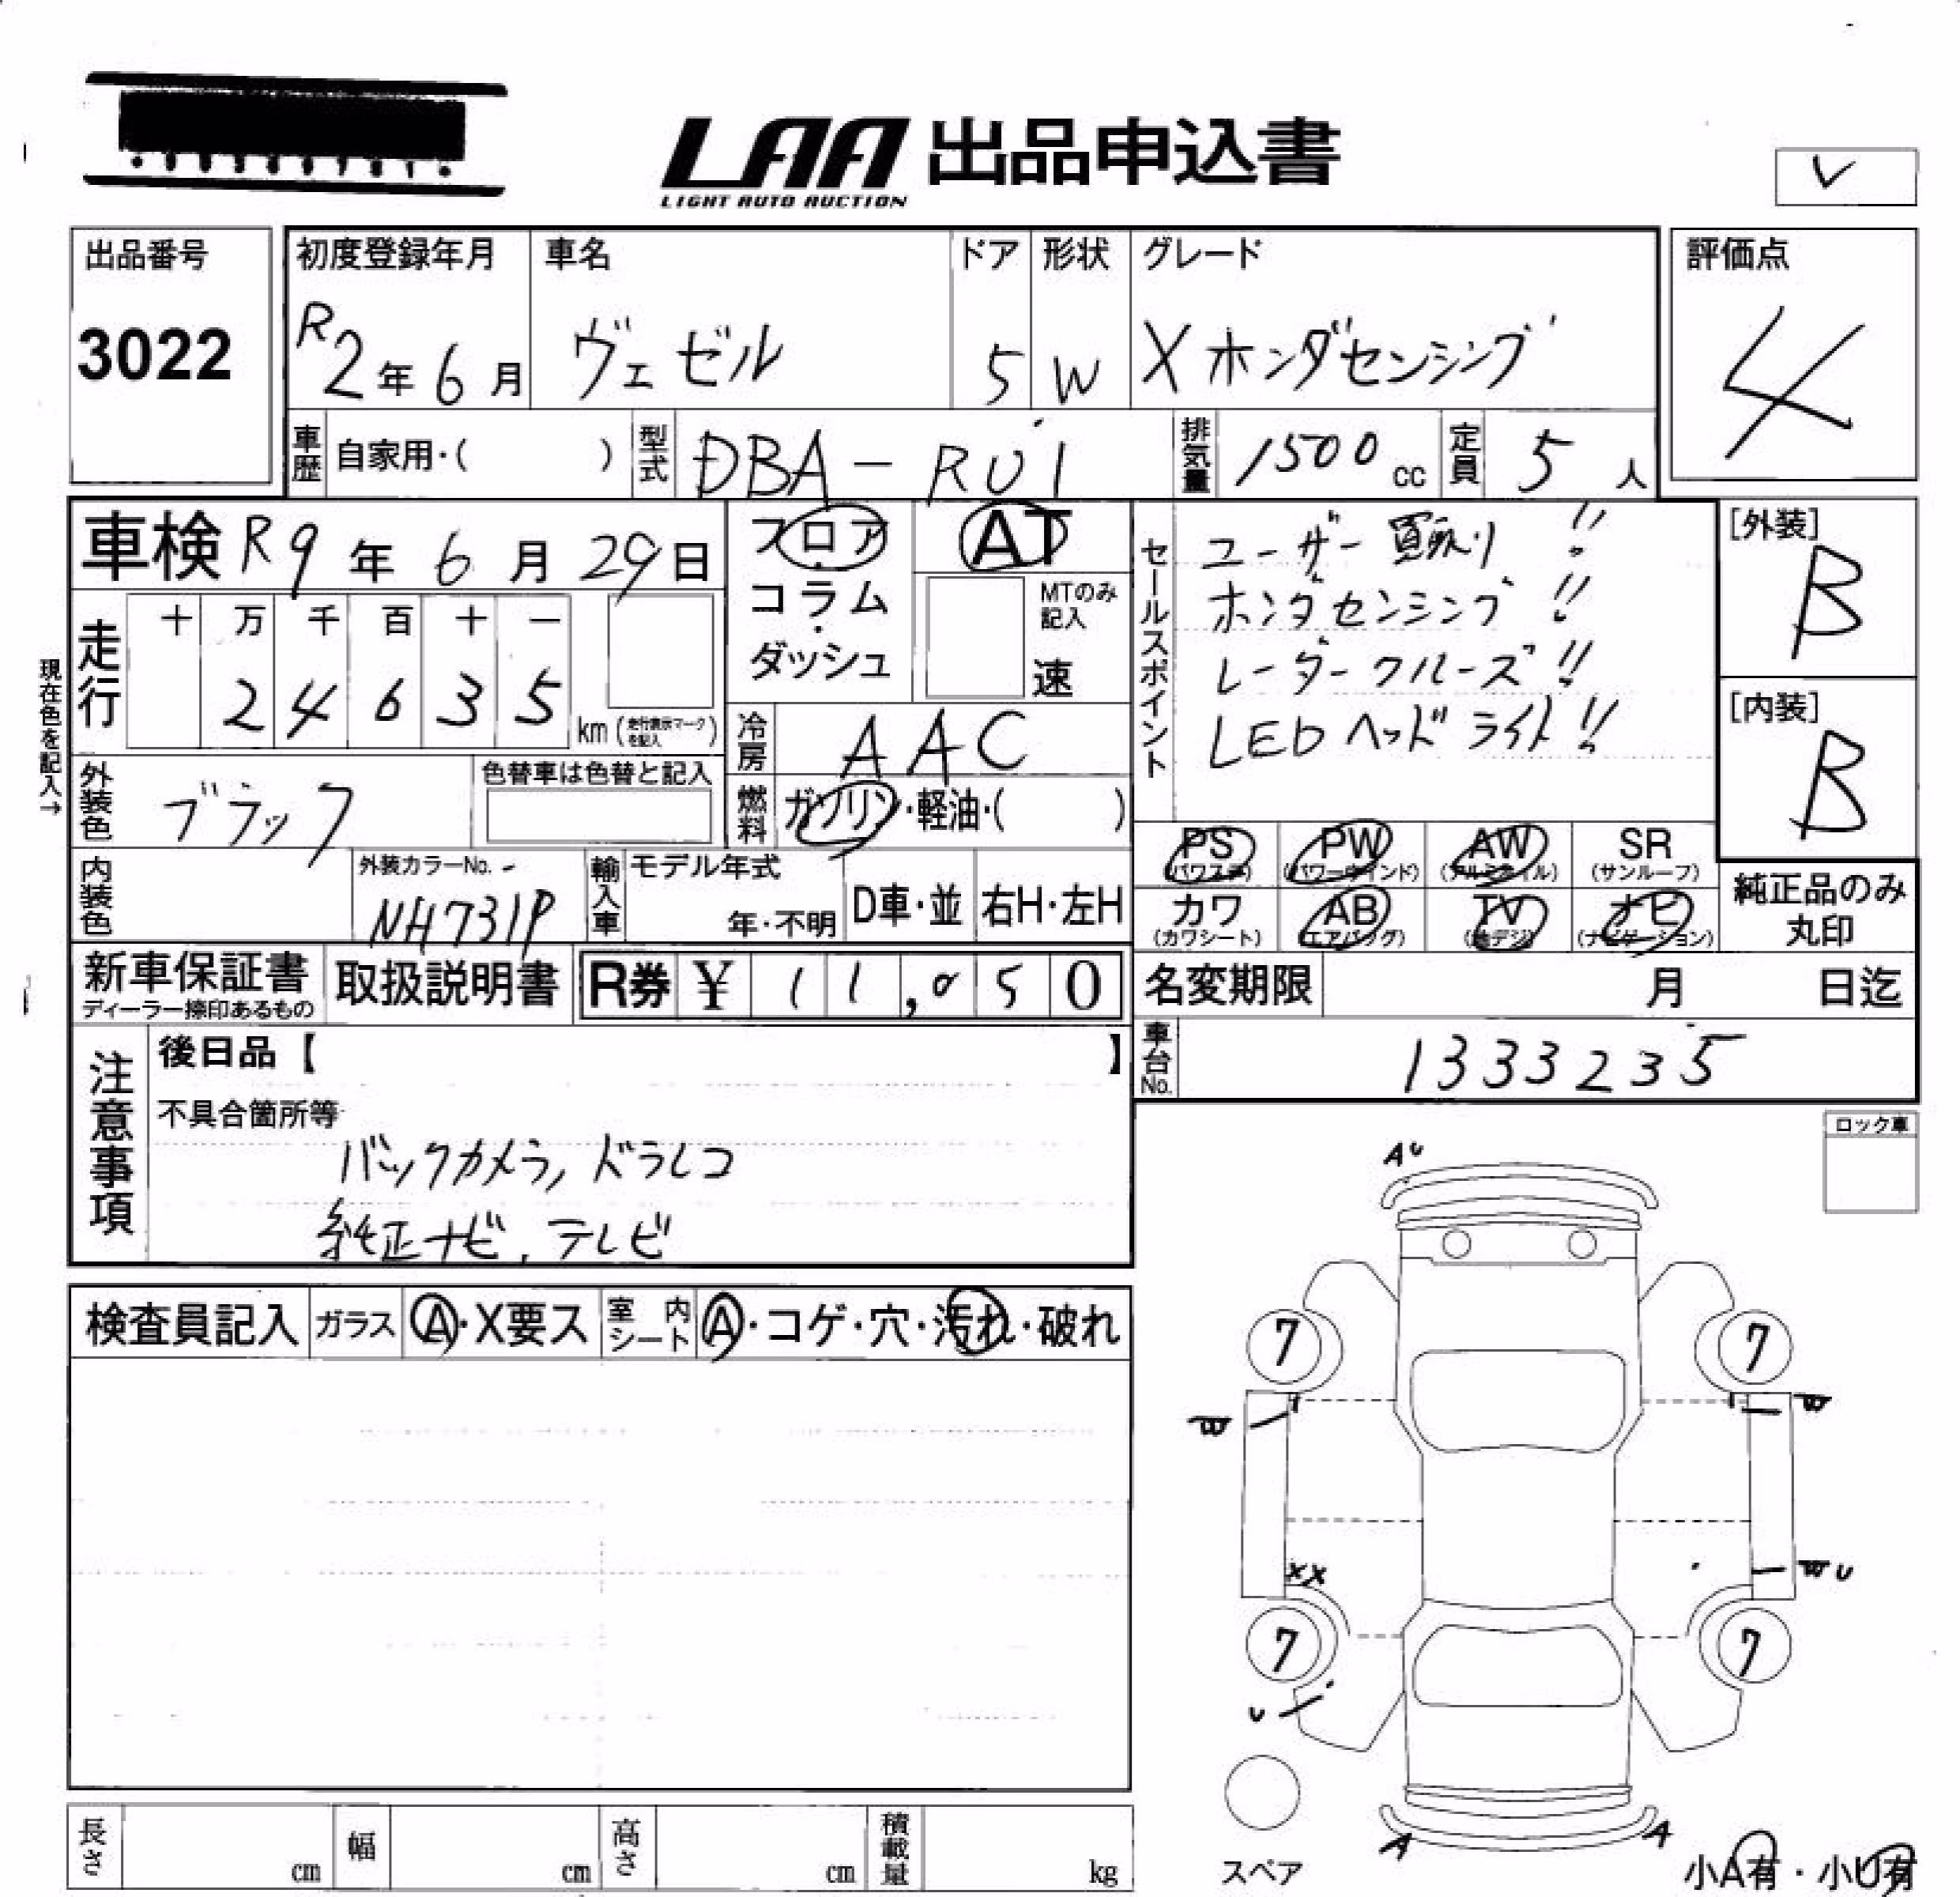 LAA 出品申込書
LIGHT AUTO AUCTION
出品番号
3022
初度登録年月
R2年6月
車名
ヴェゼル
ドア
5
形状
W
グレード
Xホンダセンシング
評価点
4
車歴 自家用・( )
型式 DBA-RU1
排気量 1500cc
定員 5人
車検 R9年6月29日
フロア・コラム・ダッシュ
AT
MTのみ記入
速
走行
十 万 千 百 十 一
2 4 6 3 5
km(走行表示マークを記入)
現在色を記入→
冷房 AAC
燃料 ガソリン・軽油・( )
外装色 ブラック
色替車は色替と記入
内装色
外装カラーNo.
NH731P
輸入車
モデル年式
年・不明
D車・並
右H・左H
セールスポイント
ユーザー買取り!!
ホンダセンシング!!
レーダークルーズ!!
LEDヘッドライト!!
[外装]
B
[内装]
B
PS (パワステ)
PW (パワーウインド)
AW (アルミホイル)
SR (サンルーフ)
カワ (カワシート)
AB (エアバッグ)
TV (地デジ)
ナビ (ナビゲーション)
純正品のみ
丸印
新車保証書
ディーラー捺印あるもの
取扱説明書
R券 ¥ 11,050
名変期限 月 日迄
車台No. 1333235
注意事項
後日品【 】
不具合箇所等
バックカメラ, ドラレコ
純正ナビ, テレビ
ロック車
検査員記入
ガラス A・X要ス
室内シート A・コゲ・穴・汚れ・破れ
AU
7
7
W
W
XX
WU
7
7
U
A
A
スペア
小A有・小U有
長さ cm
幅 cm
高さ cm
積載量 kg